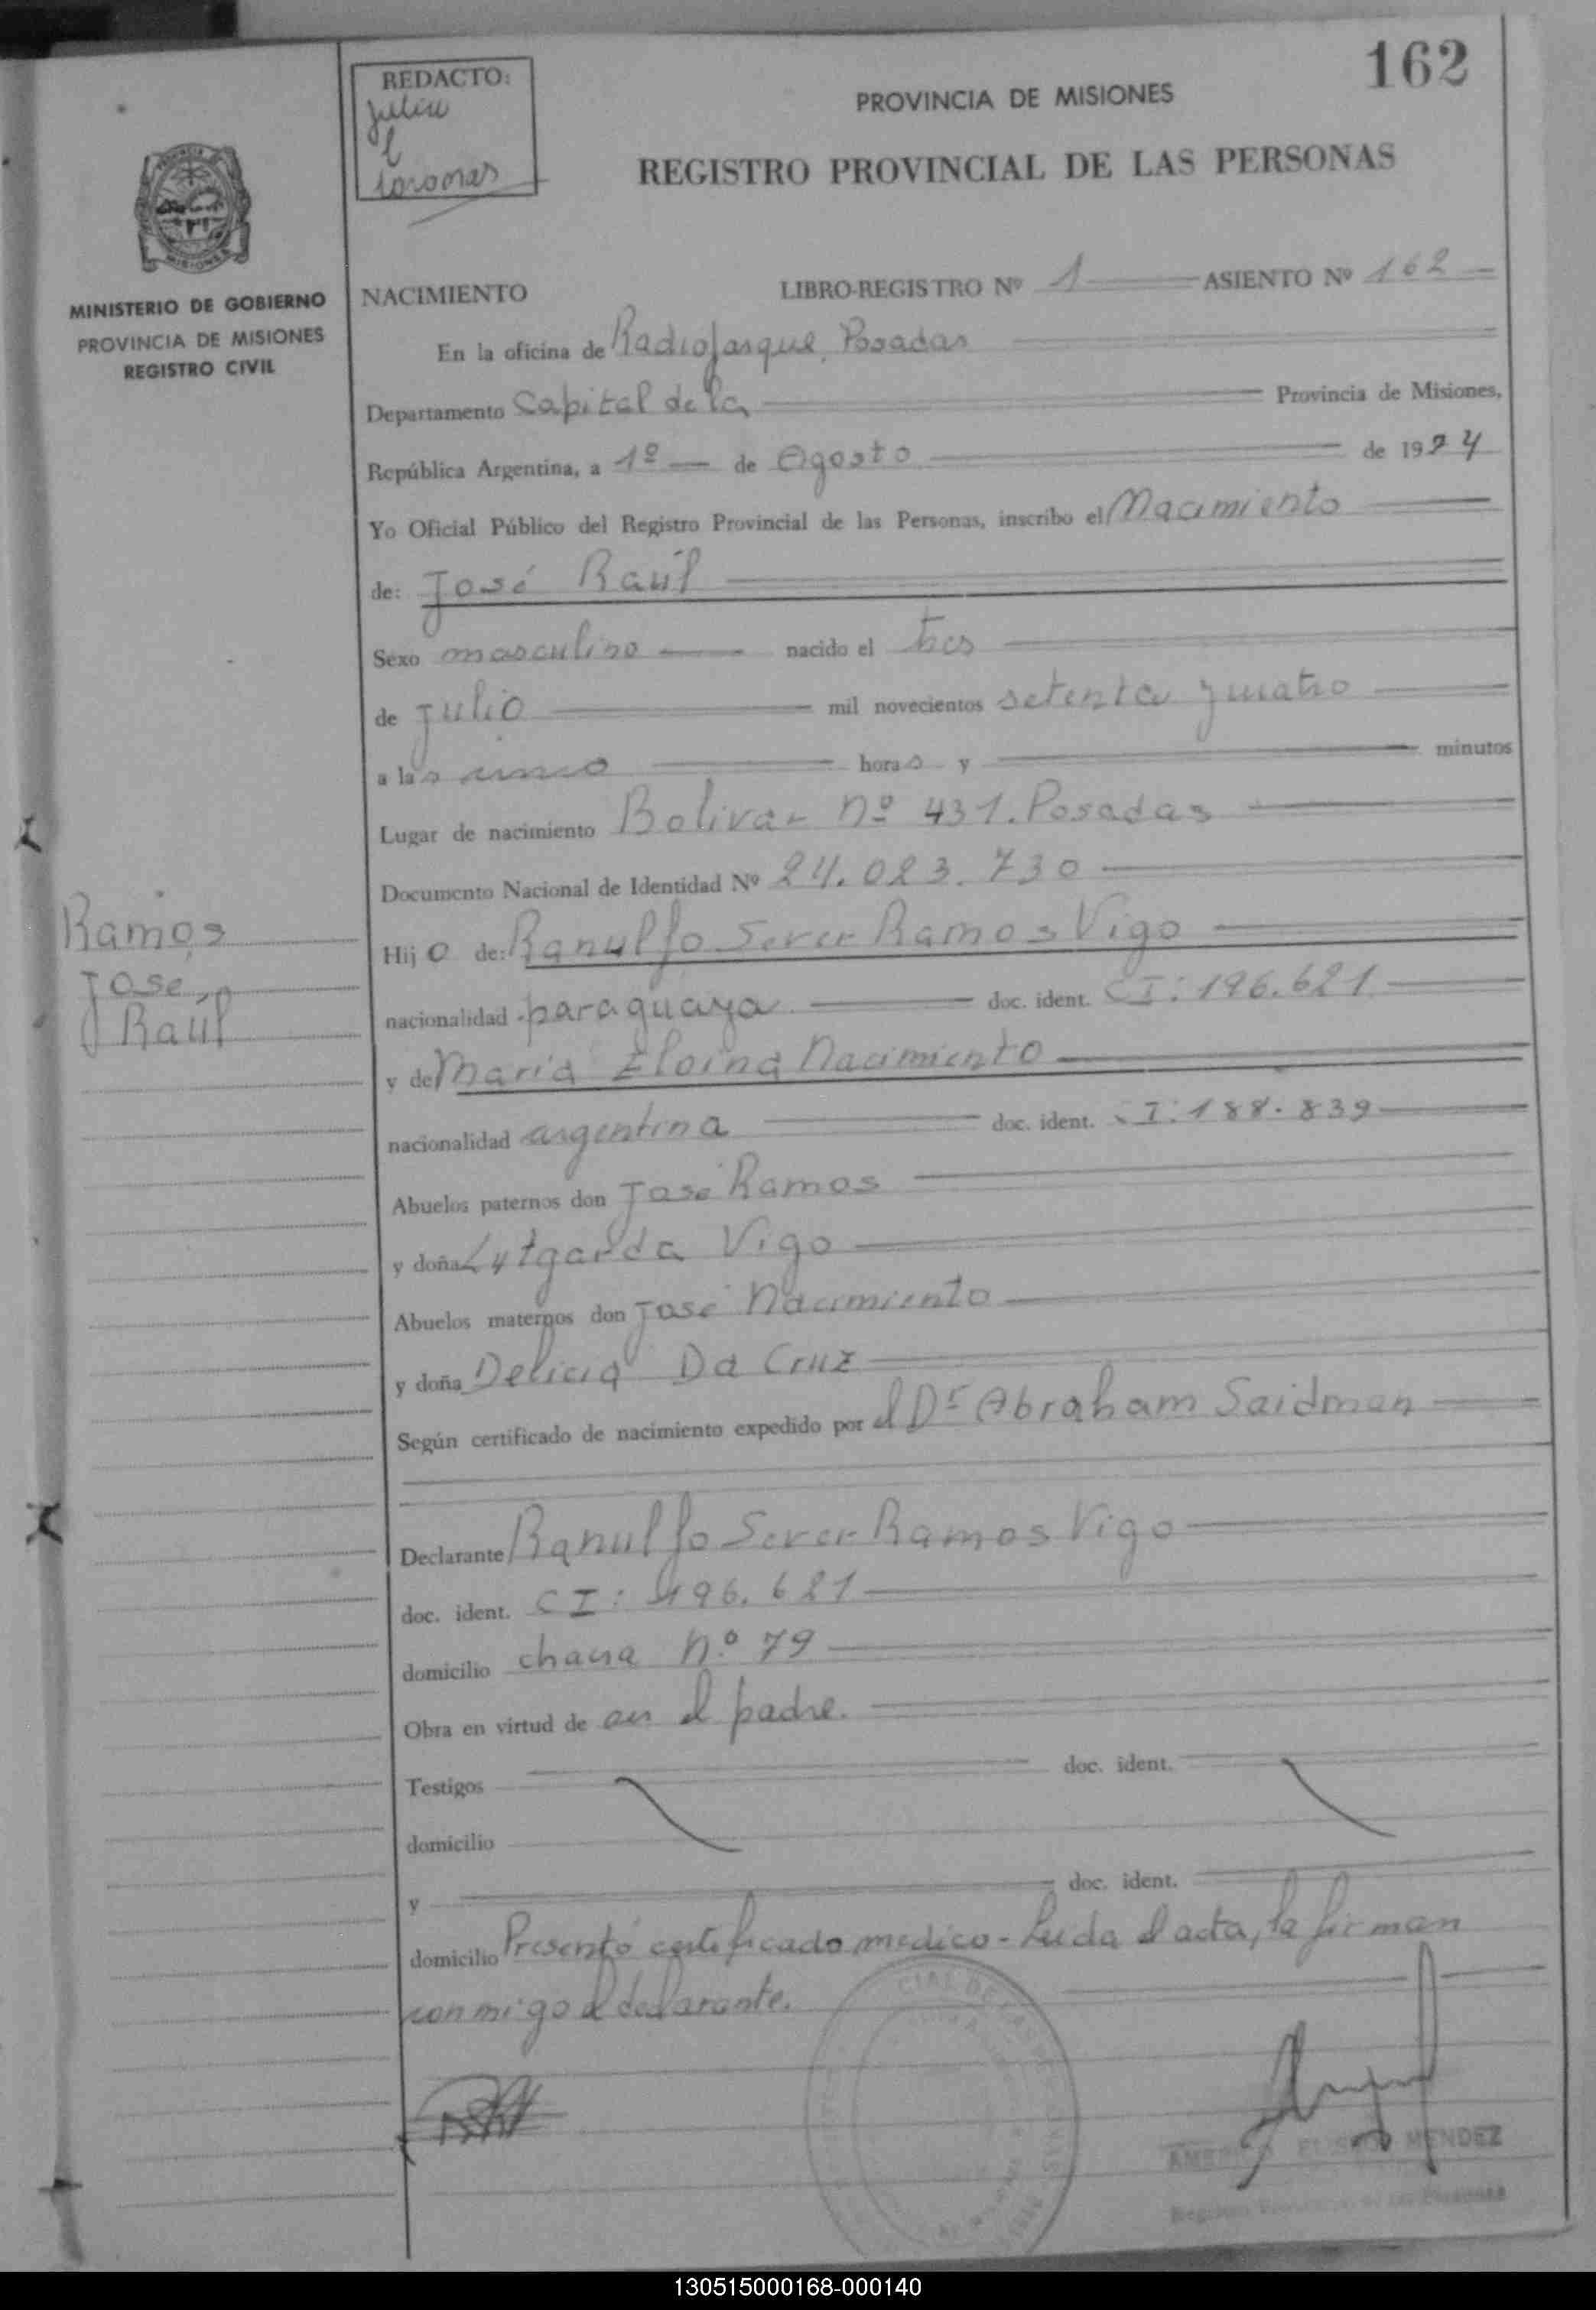 162
REDACTO:
PROVINCIA DE MISIONES
REGISTRO PROVINCIAL DE LAS PERSONAS
MINISTERIO DE GOBIERNO
PROVINCIA DE MISIONES
REGISTRO CIVIL
NACIMIENTO LIBRO-REGISTRO Nº 1 ASIENTO Nº 162
En la oficina de Radioparque, Posadas
Departamento Capital de la Provincia de Misiones,
República Argentina, a 1º de Agosto de 1974
Yo Oficial Público del Registro Provincial de las Personas, inscribo el Nacimiento
de: José Raúl
Sexo masculino nacido el tres
de julio mil novecientos setenta y cuatro
a las cinco horas y minutos
Lugar de nacimiento Bolivar nº 431. Posadas
Documento Nacional de Identidad Nº 24.023.730
Ramos
José
Raúl
Hijo de: Ranulfo Sever Ramos Vigo
nacionalidad paraguaya doc. ident. CI: 196.621
y de María Eloina Nacimiento
nacionalidad argentina doc. ident. CI: 188.839
Abuelos paternos don José Ramos
y doña Lutgarda Vigo
Abuelos maternos don José Nacimiento
y doña Delicia Da Cruz
Según certificado de nacimiento expedido por el Dr Abraham Saidman
Declarante Ranulfo Sever Ramos Vigo
doc. ident. CI: 196.621
domicilio chacra n.º 79
Obra en virtud de ser el padre.
Testigos doc. ident.
domicilio
y doc. ident.
domicilio Presentó certificado medico - Leida el acta, la firman
conmigo el declarante.
MENDEZ
130515000168-000140